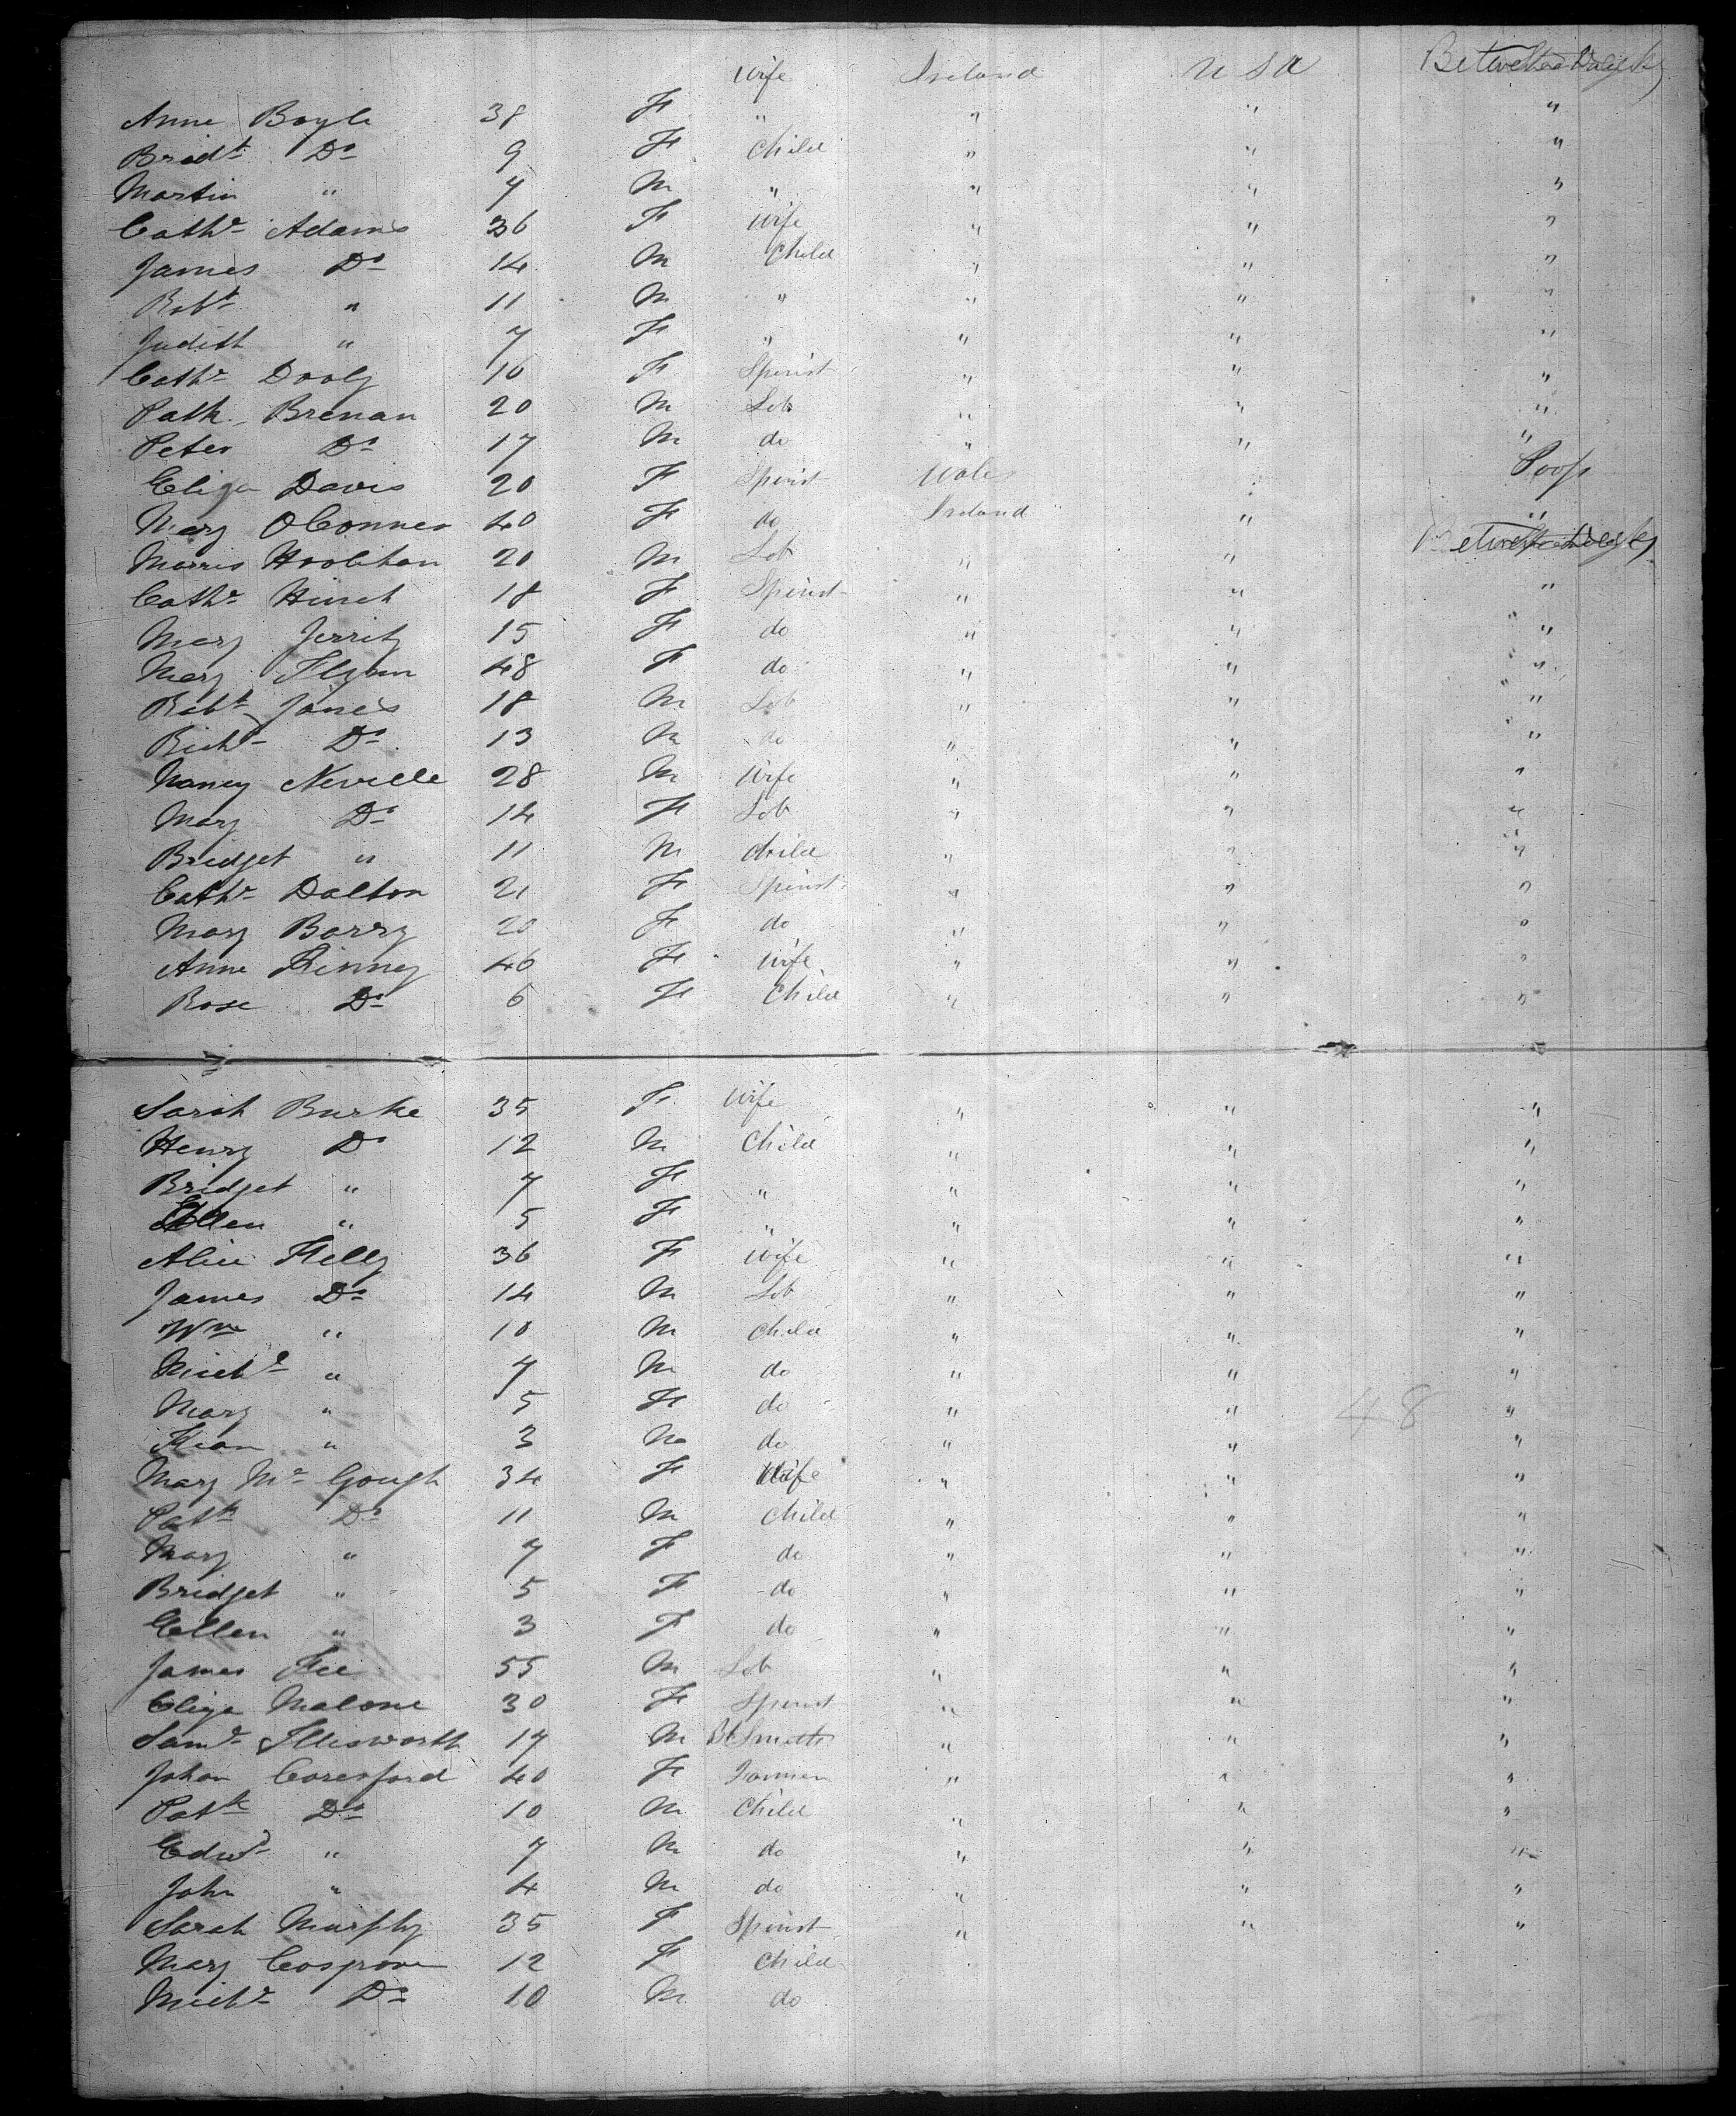 wife Ireland U S A Between Decks
Anne Boyle 38 F " " " "
Bridt Do 9 F Child " " "
Martin " 7 M " " " "
Cathe Adams 36 F wife " " "
James Do 14 M Child " " "
Robt " 11 M " " " "
Judith " 7 F " " " "
Cathe Dooly 16 F Spinst " " "
Patk Brenan 20 M Lab " " "
Peter Do 17 M do " " "
Eliza Davis 20 F Spinst Wales " Poop
Mary OConner 40 F do Ireland " "
Morris Hoolihan 20 M Lab " " Between Decks
Cathe Hinch 18 F Spinst " " "
Mary Jerrity 15 F do " " "
Mary Flynn 48 F do " " "
Robt Jones 18 M Lab " " "
Richd Do 13 M do " " "
Nancy Neville 28 M wife " " "
Mary Do 14 F Lab " " "
Bridget " 11 M Child " " "
Cathe Dalton 21 F Spinst " " "
Mary Barry 20 F do " " "
Anne Kinney 46 F wife " " "
Rose Do 6 F Child " " "
Sarah Burke 35 F wife " " "
Henry Do 12 M Child " " "
Bridget " 7 F " " " "
Ellen " 5 F " " " "
Alice Kelly 36 F wife " " "
James Do 14 M Lab " " "
Wm " 10 M Child " " "
Michl " 7 M do " " "
Mary " 5 F do " " " 48
Kian " 3 M do " " "
Mary Mc Gough 34 F Wife " " "
Patk Do 11 M Child " " "
Mary " 7 F do " " "
Bridget " 5 F do " " "
Ellen " 3 F do " " "
James Fee 55 M Lab " " "
Eliza Malone 30 F Spinst " " "
Saml Illisworth 17 M Bl Smith " " "
Johan Coresford 40 F " " "
Patk Do 10 M Child " " "
Edwd " 7 M do " " "
John " 4 M do " " "
Sarah Murphy 35 F Spinst " " "
Mary Cosgrove 12 F Child
Michl Do 10 M do